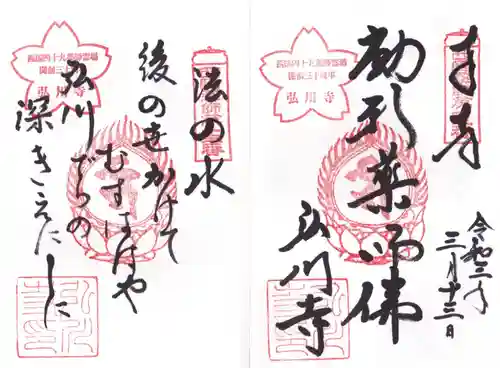 奉拝
令和三年
三月十三日
薬師佛
弘川寺
西国四十九薬師霊場
開創三十周年
弘川寺
法の水
後の世かけて
むすばばや
弘川
でらの
深きえにしに
西国四十九薬師霊場
開創三十周年
弘川寺